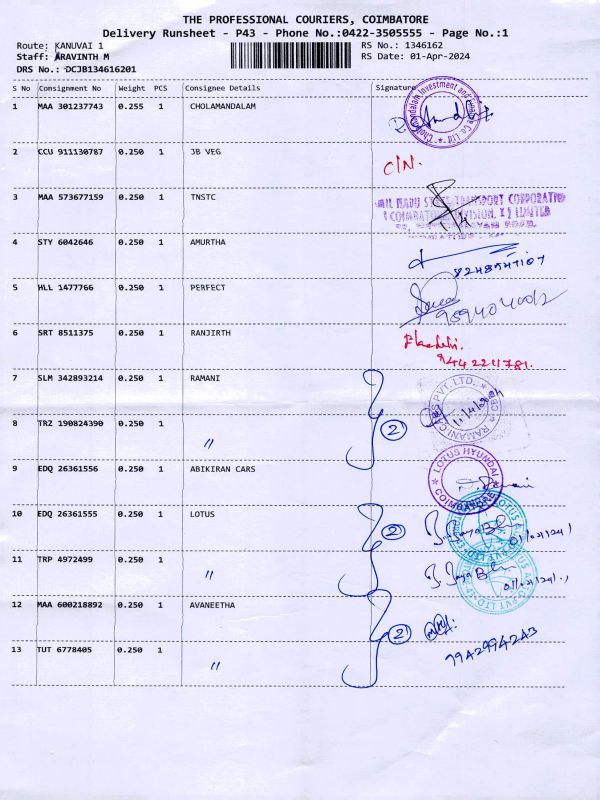 THE PROFESSIONAL COURIERS, COIMBATORE
Delivery Runsheet - P43 - Phone No.:0422-3505555 - Page No.:1
Route: KANUVAI 1 RS No.: 1346162
Staff: ARAVINTH M RS Date: 01-Apr-2024
DRS No.: DCJB134616201
S No Consignment No Weight PCS Consignee Details Signature
1 MAA 301237743 0.255 1 CHOLAMANDALAM
2 CCU 911130787 0.250 1 JB VEG C/N.
3 MAA 573677159 0.250 1 TNSTC
TRANSPORT CORPORATION
LIMITED
4 STY 6042646 0.250 1 AMURTHA
5 HLL 1477766 0.250 1 PERFECT
6 SRT 8511375 0.250 1 RANJIRTH
7 SLM 342893214 0.250 1 RAMANI
RAMANI CARS PVT. LTD.
8 TRZ 190824390 0.250 1 〃 2
9 EDQ 26361556 0.250 1 ABIKIRAN CARS
LOTUS HYUNDAI
COIMBATORE
10 EDQ 26361555 0.250 1 LOTUS 2
11 TRP 4972499 0.250 1 〃
12 MAA 600218892 0.250 1 AVANEETHA 2
7942994243
13 TUT 6778405 0.250 1 〃